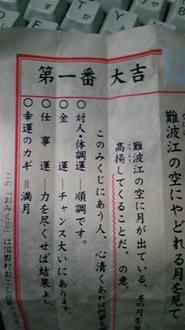 第一番 大吉
難波江の空にやどれる月を見て
難波江の空に月が出ている。その月を
高揚してくることだ、の意。
このみくじにあう人、心清くあれば何事
○対人・体調運―順調です
○金運―チャンス大いにあります。
○仕事運―力を尽くせば結果よし
○幸運のカギ＝満月
この「おみくじ」は